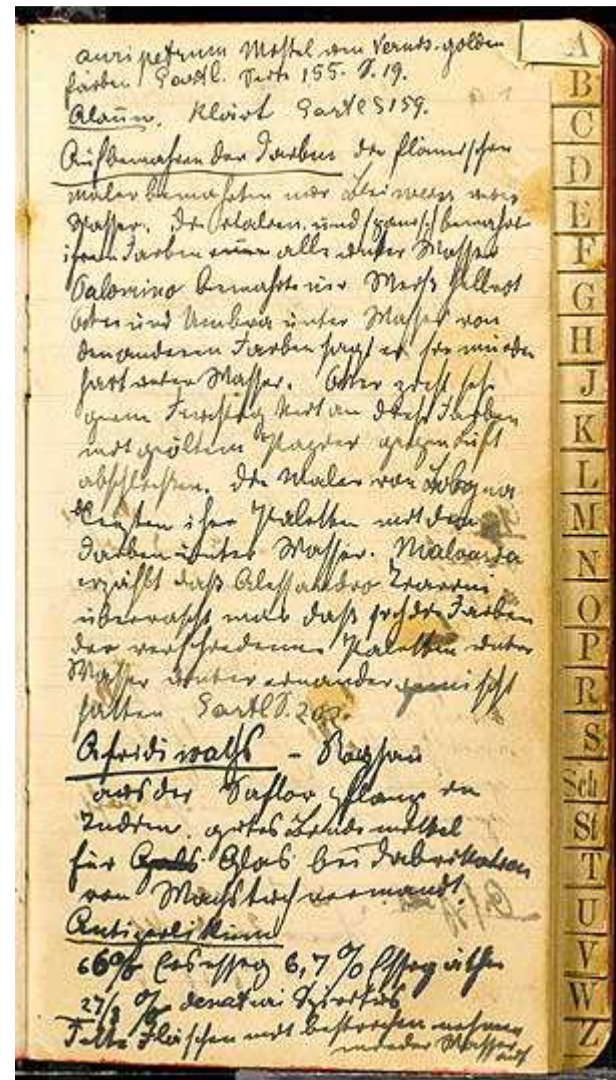 auripetrum Mittel um Vernis golden
färben Eastl. Seite 155. S. 19.
Alaun, klärt Eastl S 159.
Aufbewahren der Farben der flämischen
Maler bewahrten nur Bleiweiss unter
Wasser. Die Italien. und spanisch bewahrt
ihren Farben alle unter Wasser
Palomino bewahrte nur Weiß hellrot
Ocker und Umbra unter Wasser von
den anderen Farben sagt er sie würden
hart unter Wasser.
an diese Farben
mit geöltem Papier gegen Luft
abschließen. Die Maler von Bologna
legten ihre Paletten mit den
Farben unter Wasser. Malvasia
erzählt daß Alessandro Tiarini
überrascht war daß sich die Farben
der verschiedenen Paletten unter
Wasser unter einander gemischt
hatten Eastl S.
Afridiwachs –
aus der Saflor pflanze in
Indien. gutes Bindemittel
für Glas bei Fabrikation
von Wachstuch verwandt.
66% Essigäther
% denatur Spiritus
Fette Flächen mit bestrichen nehmen
wieder Wasser auf
A
B
C
D
E
F
G
H
J
K
L
M
N
O
P
R
S
Sch
St
T
U
V
W
Z